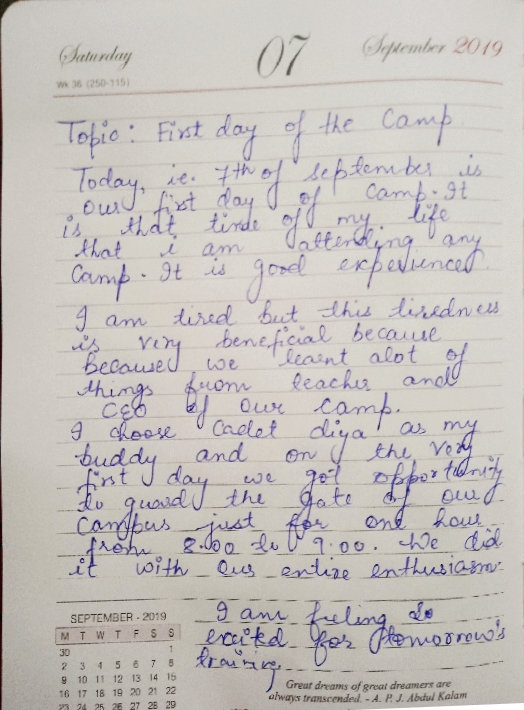 Saturday
07
September 2019
Wk 36 (250-115)
Topic: First day of the Camp
Today, ie. 7th of september is
our first day of camp. It
is that time of my life
that i am attending any
Camp. It is good experienced.
I am tired but this tiredness
is very beneficial because
because we learnt alot of
things from teacher and
CEO of our camp.
I choose Cadet diya as my
buddy and on the very
first day we got opportunity
to guard the gate of our
Campus just for one hour
from 8.00 to 9:00. We did
it with our entire enthusiasm.
I am feeling so
excited for tomorrow's
training
SEPTEMBER - 2019
M T W T F S S
30 1
2 3 4 5 6 7 8
9 10 11 12 13 14 15
16 17 18 19 20 21 22
23 24 25 26 27 28 29
Great dreams of great dreamers are
always transcended. - A. P. J. Abdul Kalam